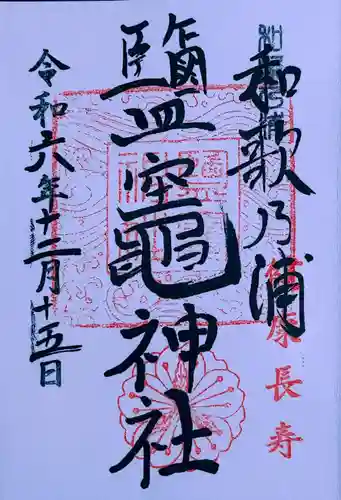 和歌乃浦
健康長寿
鹽竈神社
令和六年十二月十五日